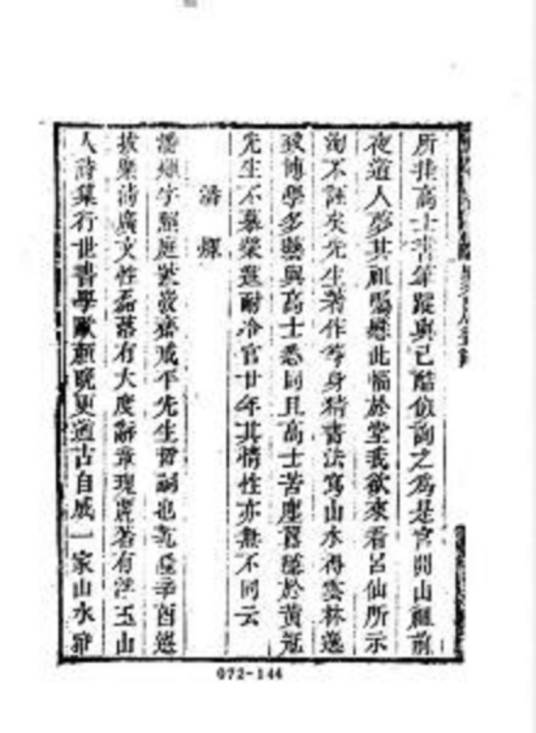 所 高士 年 與己酷似詢之為是官開山祖前
夜道人夢其祖囑懸此幅於堂我欲來看呂仙所示
洵不誣矣先生著作等身精書法寫山水得雲林逸
致博學多藝與高士悉同且高士苦塵囂隱於黃冠
先生不慕榮進耐冷官廿年其情性亦無不同云
潘 煇
潘煇字照庭 齋咸平先生哲嗣也 辛酉
拔 清廣文性磊落有大度辭章 有 玉山
人詩集行世書學歐顏晚更 古自成一家山水
072-144